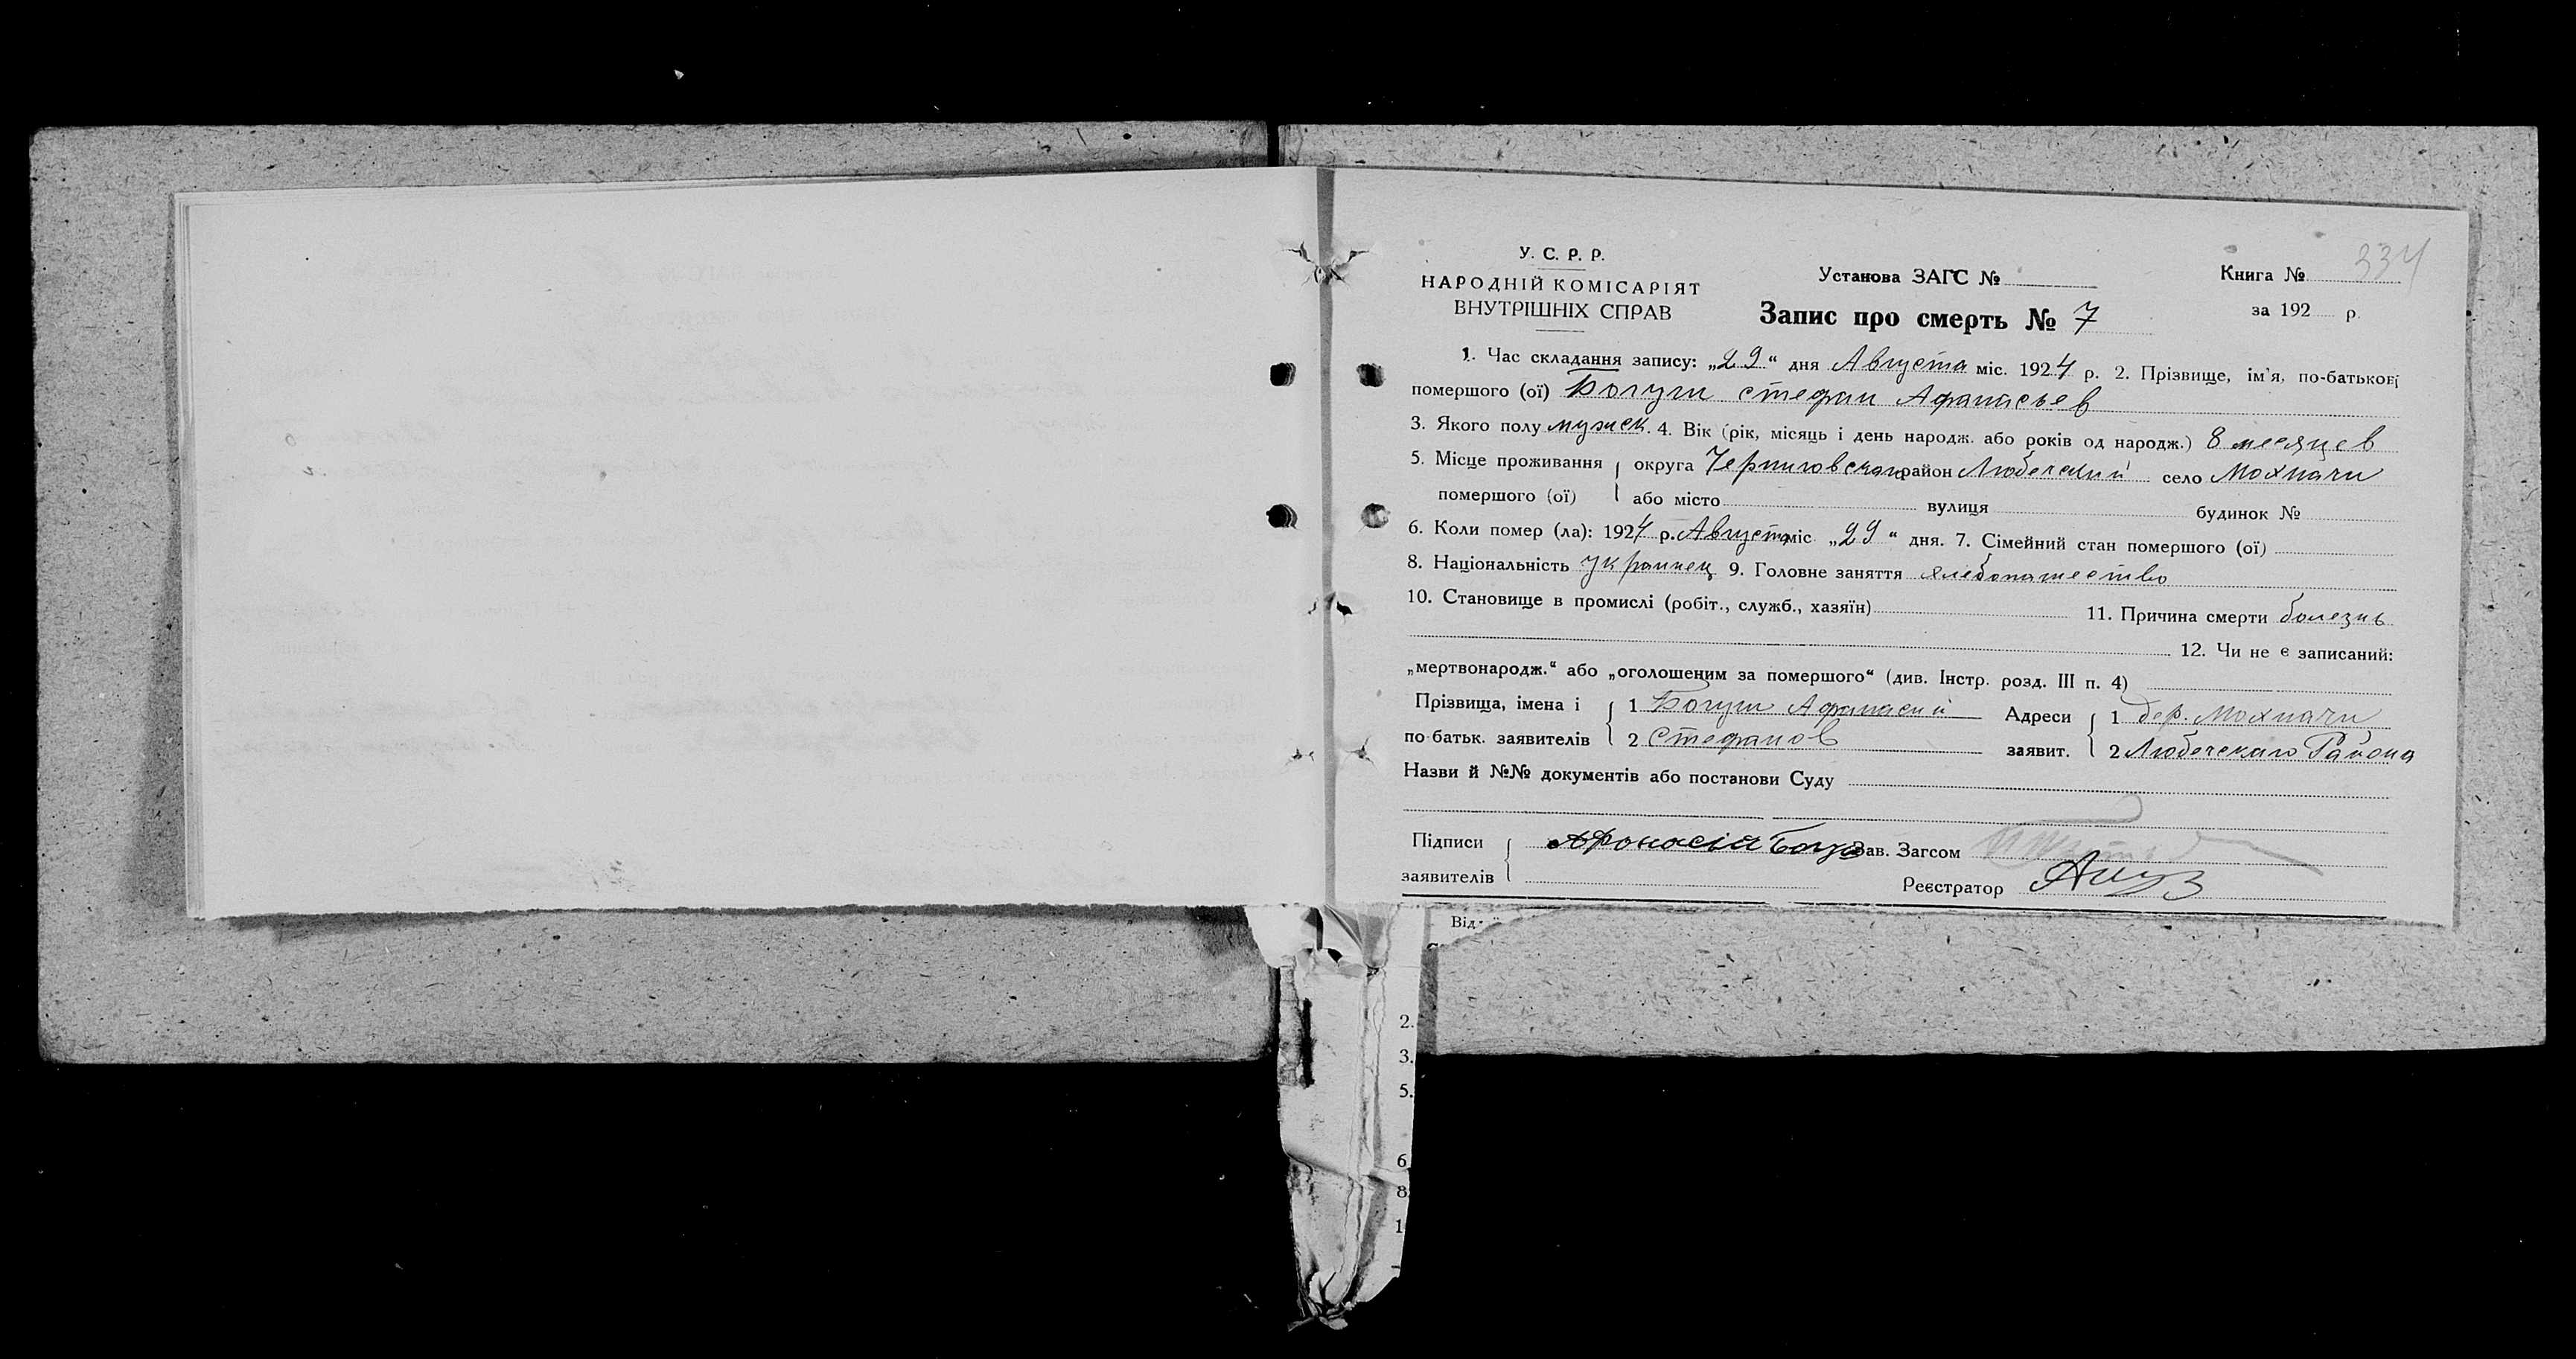 У. С. Р. Р.
НАРОДНІЙ КОМІСАРІЯТ
ВНУТРІШНІХ СПРАВ
Установа ЗАГС №
Книга № 334
Запис про смерть № 7
за 192 р.
1. Час складання запису: „29“ дня Августа міс. 1924 р. 2. Прізвище, ім'я, по-батькові
помершого (ої) Богуш Стефан Афанасьев
3. Якого полу мужск. 4. Вік (рік, місяць і день народж. або років од народж.) 8 месяцев
5. Місце проживання округа Черниговская район Любечский село Мохначи
помершого (ої) або місто вулиця будинок №
6. Коли помер (ла): 1924 р. Августа міс. „29“ дня. 7. Сімейний стан помершого (ої)
8. Національність украинец 9. Головне заняття хлебопашество
10. Становище в промислі (робіт., служб., хазяїн) 11. Причина смерти болезнь
12. Чи не є записаний:
„мертвонародж.“ або „оголошеним за помершого“ (див. Інстр. розд. III п. 4)
Прізвища, імена і 1 Богуш Афанасий Адреси 1 дер. Мохначи
по-батьк. заявителів 2 Стефанов заявит. 2 Любечскаго Района
Назви й №№ документів або постанови Суду
Підписи Афонасій Зав. Загсом
заявителів Реєстратор
Від
2.
3.
5.
6
8
1